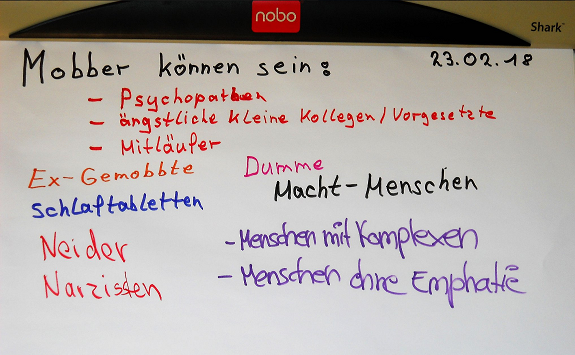 nobo
Shark™
Mobber können sein:
23.02.18
- Psychopathen
- ängstliche kleine Kollegen / Vorgesetzte
- Mitläufer
Ex-Gemobbte
Dumme
Macht-Menschen
Schlaftabletten
Neider
- Menschen mit Komplexen
Narzissten
- Menschen ohne Emphatie